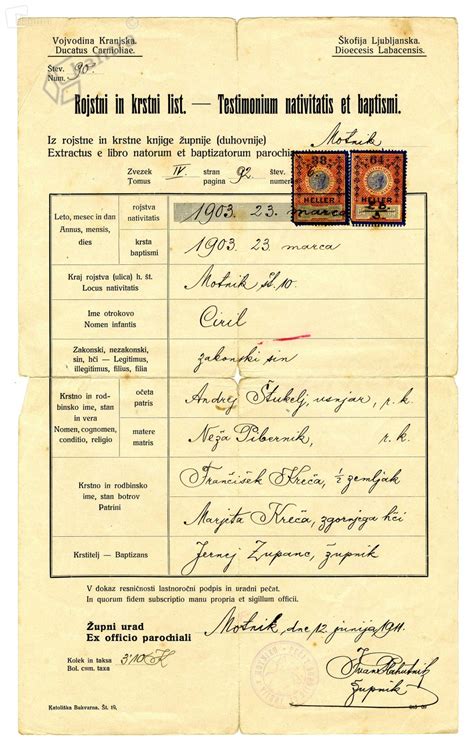 Vojvodina Kranjska.
Ducatus Carnioliae.
Škofija Ljubljanska.
Dioecesis Labacensis.
Štev. 90.
Num.
Rojstni in krstni list. — Testimonium nativitatis et baptismi.
Iz rojstne in krstne knjige župnije (duhovnije) Motnik
Extractus e libro natorum et baptizatorum parochiae
Zvezek IV. stran 92. štev.
Tomus pagina numer
38
HELLER
64
HELLER
Leto, mesec in dan
Annus, mensis,
dies
rojstva
nativitatis
1903. 23. marca
krsta
baptismi
1903. 23 marca
Kraj rojstva (ulica) h. št.
Locus nativitatis
Motnik št. 10
Ime otrokovo
Nomen infantis
Ciril
Zakonski, nezakonski,
sin, hči — Legitimus,
illegitimus, filius, filia
zakonski sin
Krstno in rod-
binsko ime, stan
in vera
Nomen, cognomen,
conditio, religio
očeta
patris
Andrej Štukelj, usnjar, r. k.
matere
matris
Neža Pibernik, r. k.
Krstno in rodbinsko
ime, stan botrov
Patrini
Frančišek Kreča, ½ zemljak
Marjeta Kreča, zgornjega hči
Krstitelj — Baptizans
Jernej Zupanc, župnik
V dokaz resničnosti lastnoročni podpis in uradni pečat.
In quorum fidem subscriptio manu propria et sigillum officii.
Župni urad
Ex officio parochiali
Motnik, dne 12. junija 1911.
Kolek in taksa
Bol. cum. taxa
3·10 K
župnik
Katoliška Bukvarna. Št. 19.